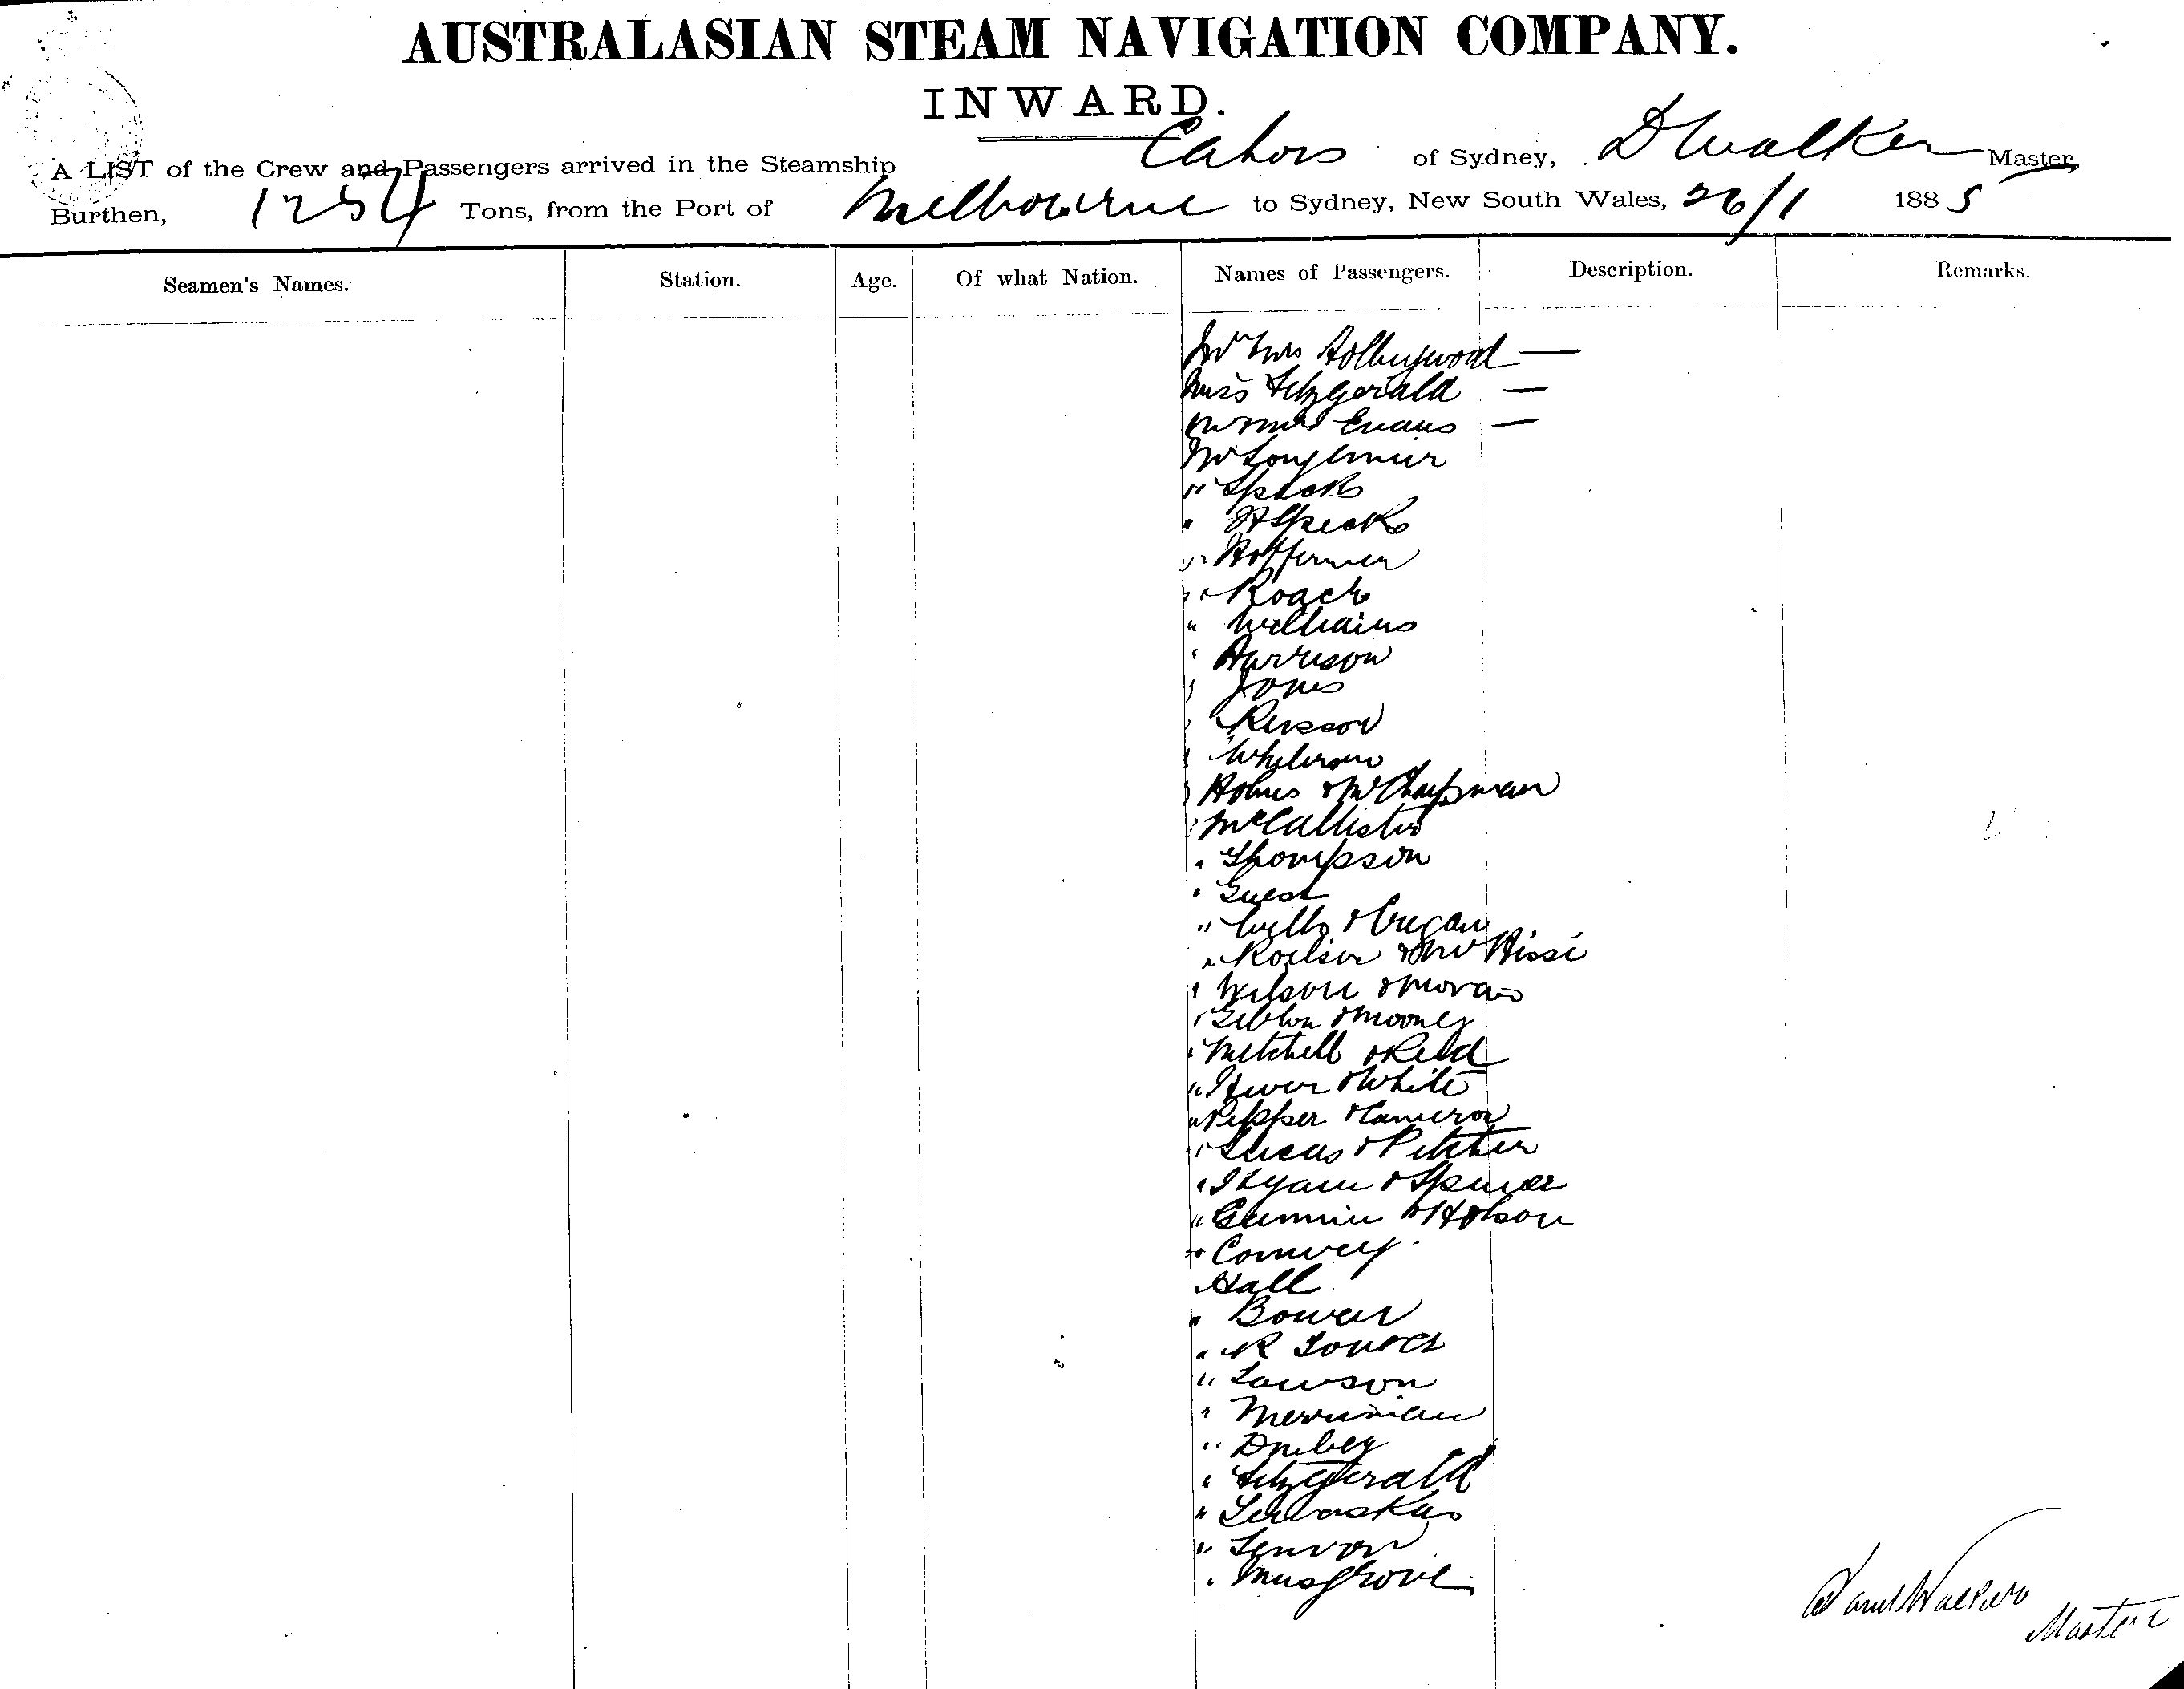 AUSTRALASIAN STEAM NAVIGATION COMPANY.
INWARD.
A LIST of the Crew and Passengers arrived in the Steamship Cahors of Sydney, D Walker Master,
Burthen, 1254 Tons, from the Port of Melbourne to Sydney, New South Wales, 26/1 1885
Seamen's Names. Station. Age. Of what Nation. Names of Passengers. Description. Remarks.
Mr Mrs Hollingwood —
Miss Fitzgerald —
Mr & Mrs Evans —
Mr Longmuir
" Speck
" H Speck
" Heffernan
" Roach
" Williams
" Harrison
" Jones
"
"
" Holmes & Mr Chapman
" McCallister
" Thompson
" Guest
" Wells & Cregan
" & Mr
" Wilson & Moran
" Gibbon & Mooney
" Mitchell & Reid
" & White
" Pepper & Cameron
" Lucas & Pitcher
" & Spencer
" &
" Conway
" Hall
" Bowen
" R
" Lawson
" Merriman
"
" Fitzgerald
"
"
" Musgrove
Danl Walker
Master